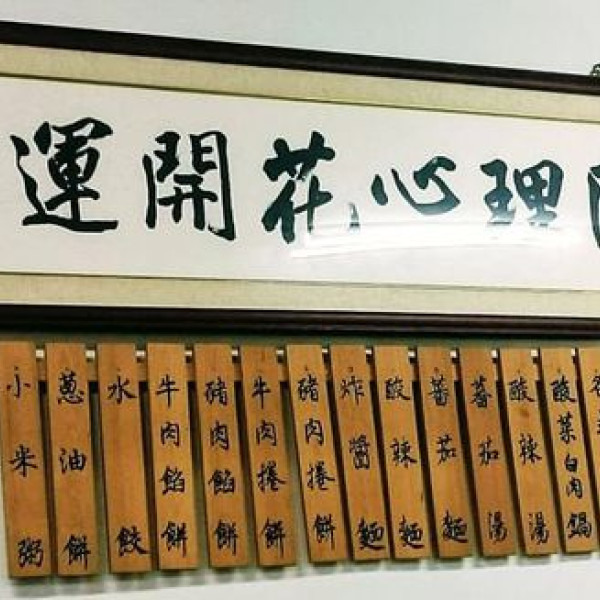 運開花心理
小米粥
蔥油餅
水餃
牛肉餡餅
豬肉餡餅
牛肉捲餅
豬肉捲餅
炸醬麵
酸辣麵
蕃茄麵
蕃茄湯
酸辣湯
酸菜白肉鍋